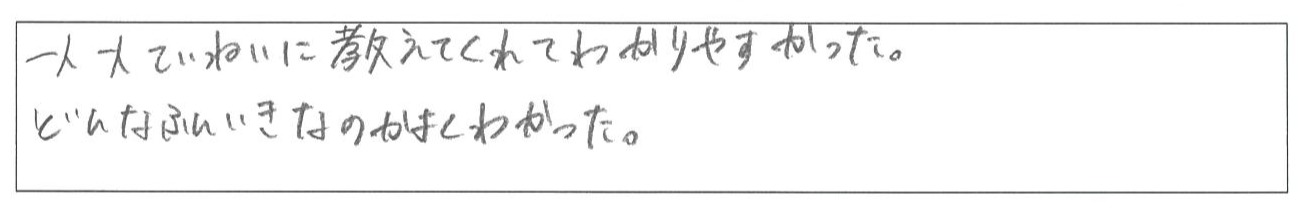 一人一人ていねいに教えてくれてわかりやすかった。
どんなふんいきなのかよくわかった。